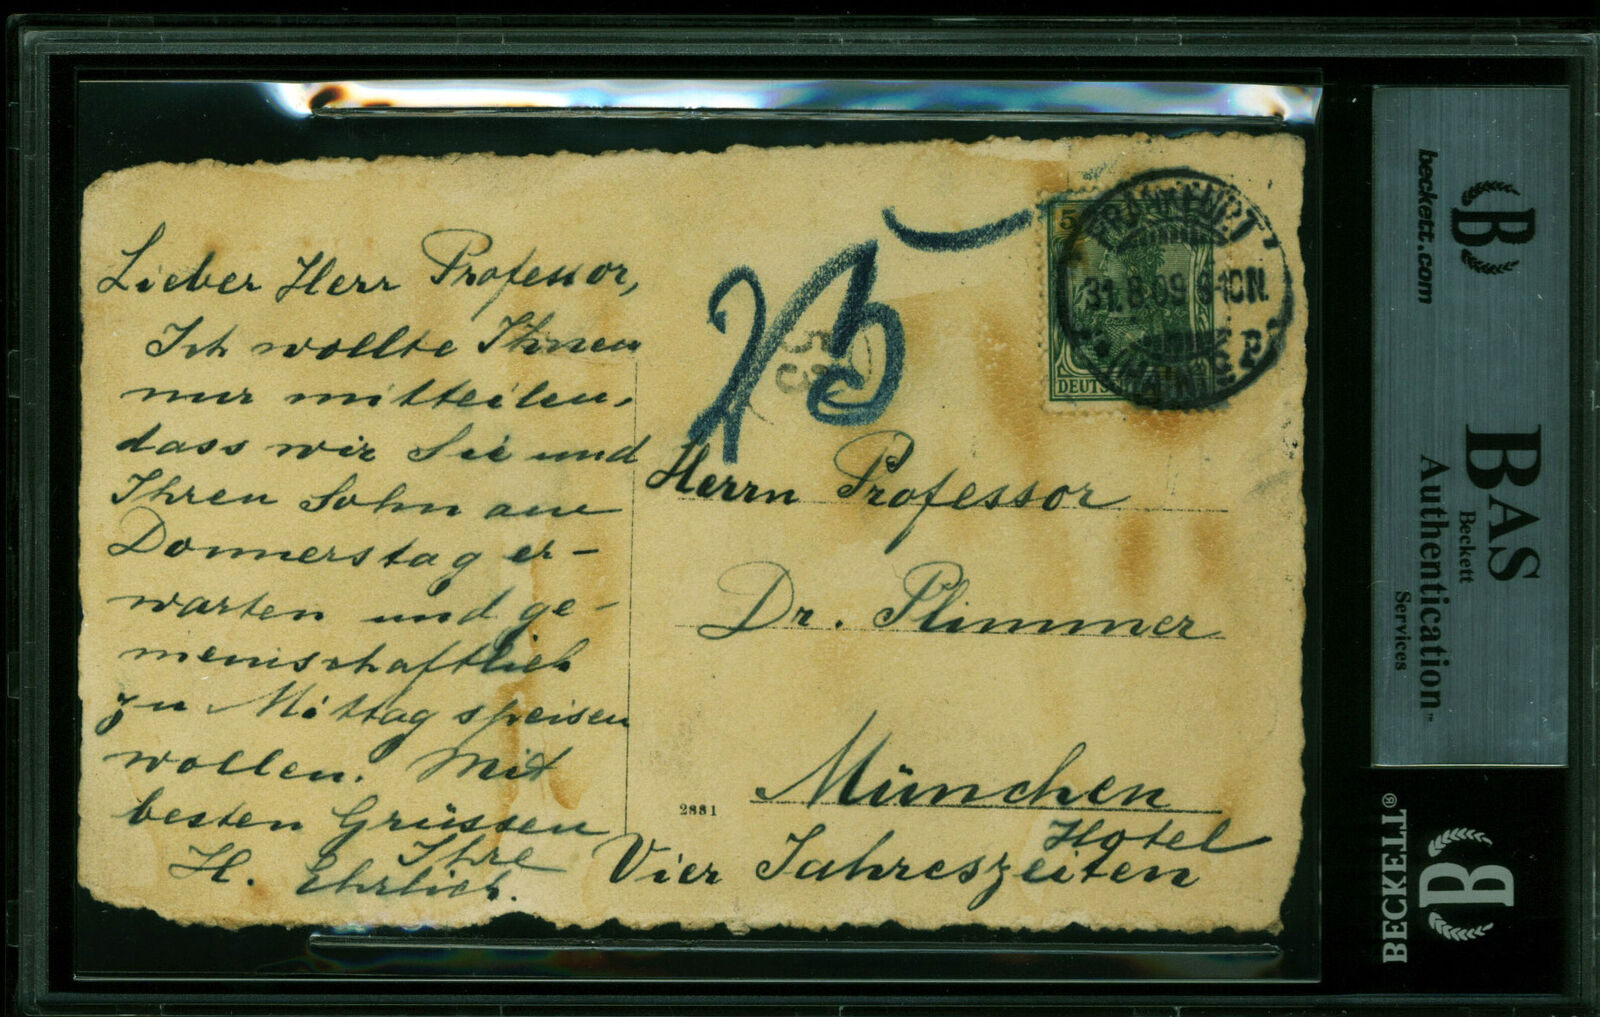 Lieber Herr Professor,
Ich wollte Ihnen
nur mitteilen,
dass wir Sie und
Ihren Sohn am
Donnerstag er-
warten und ge-
meinschaftlich
zu Mittag speisen
wollen. Mit
besten Grüssen
Ihre
H. Ehrlich.
25
53
5
FRANKFURT
31.8.09 9-10N.
(MAIN)
DEUTSC
Herrn Professor
Dr. Plimmer
München
Hotel
Vier Jahreszeiten
2881
B
beckett.com
BAS
Beckett
Authentication™
Services
BECKETT®
B